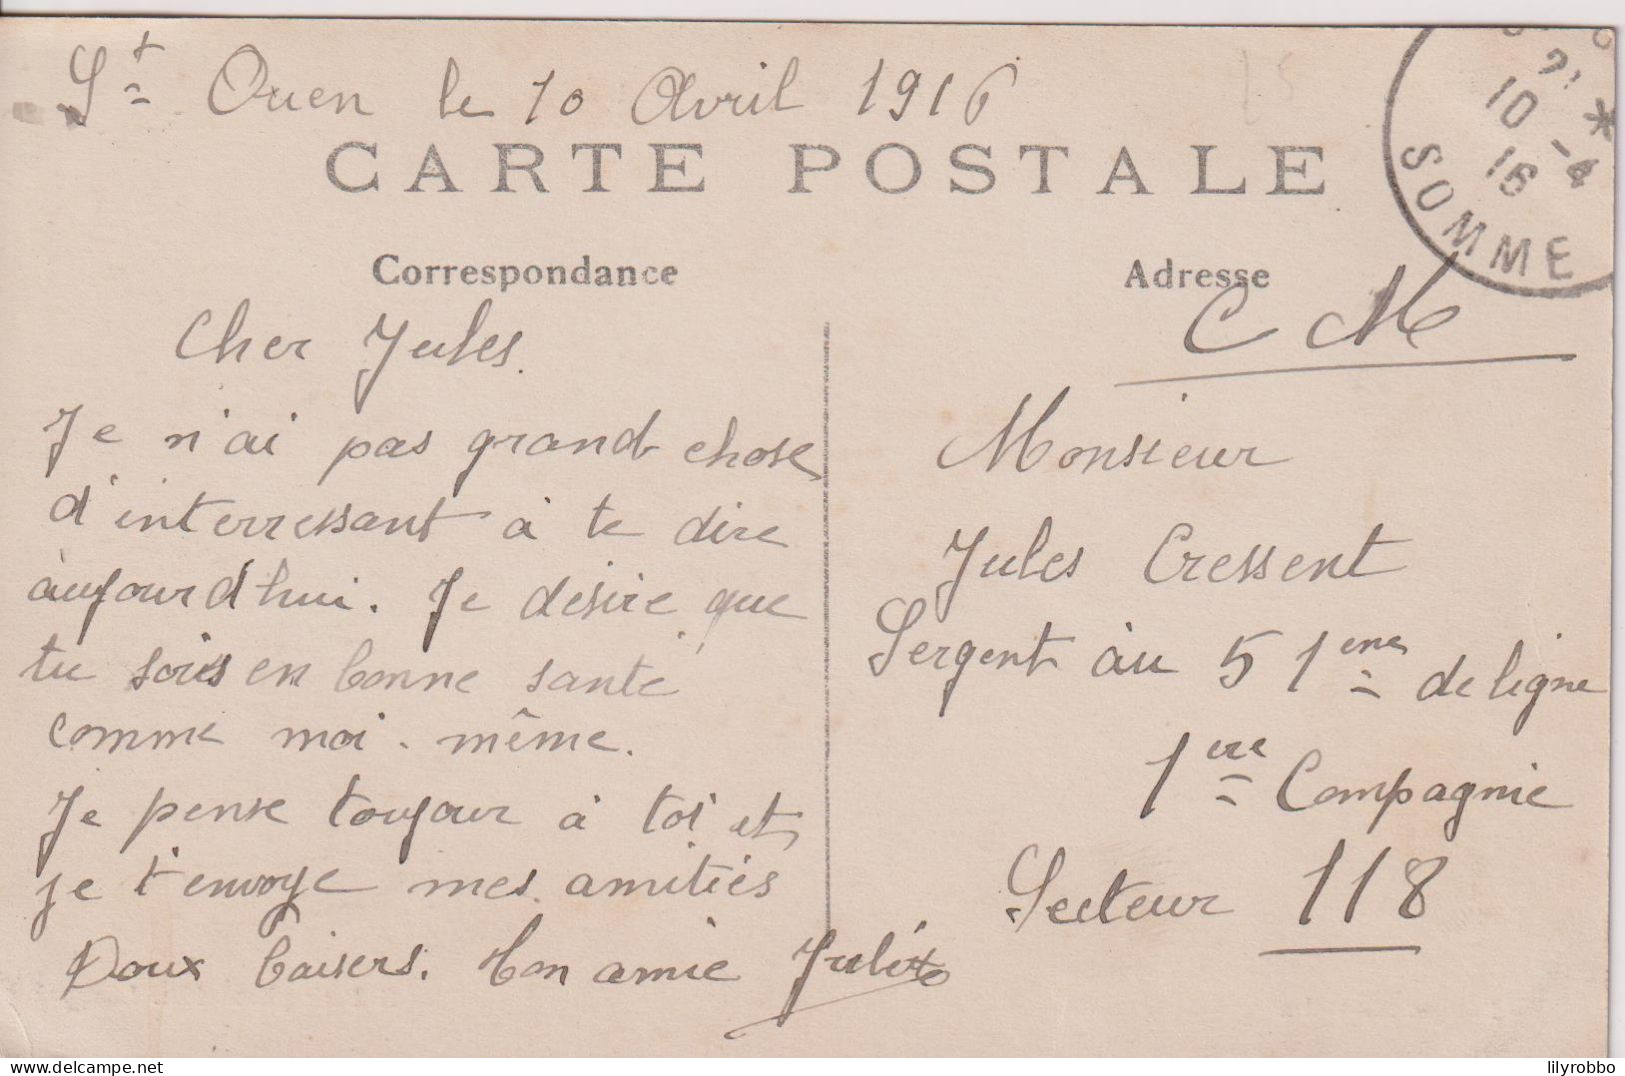 St Ouen le 10 Avril 1916
CARTE POSTALE
10 -4
16
SOMME
Correspondance
Cher Jules.
Je n'ai pas grand chose
d'interressant à te dire
aujourd'hui. Je désire que
tu sois en bonne santé
comme moi-même.
Je pense toujour à toi et
je t'envoye mes amitiés
Doux baisers. Ton amie Juliette
Adresse
C M
Monsieur
Jules Cressent
Sergent au 51ene de ligne
1ere Compagnie
Secteur 118
delcampe.net
lilyrobbo